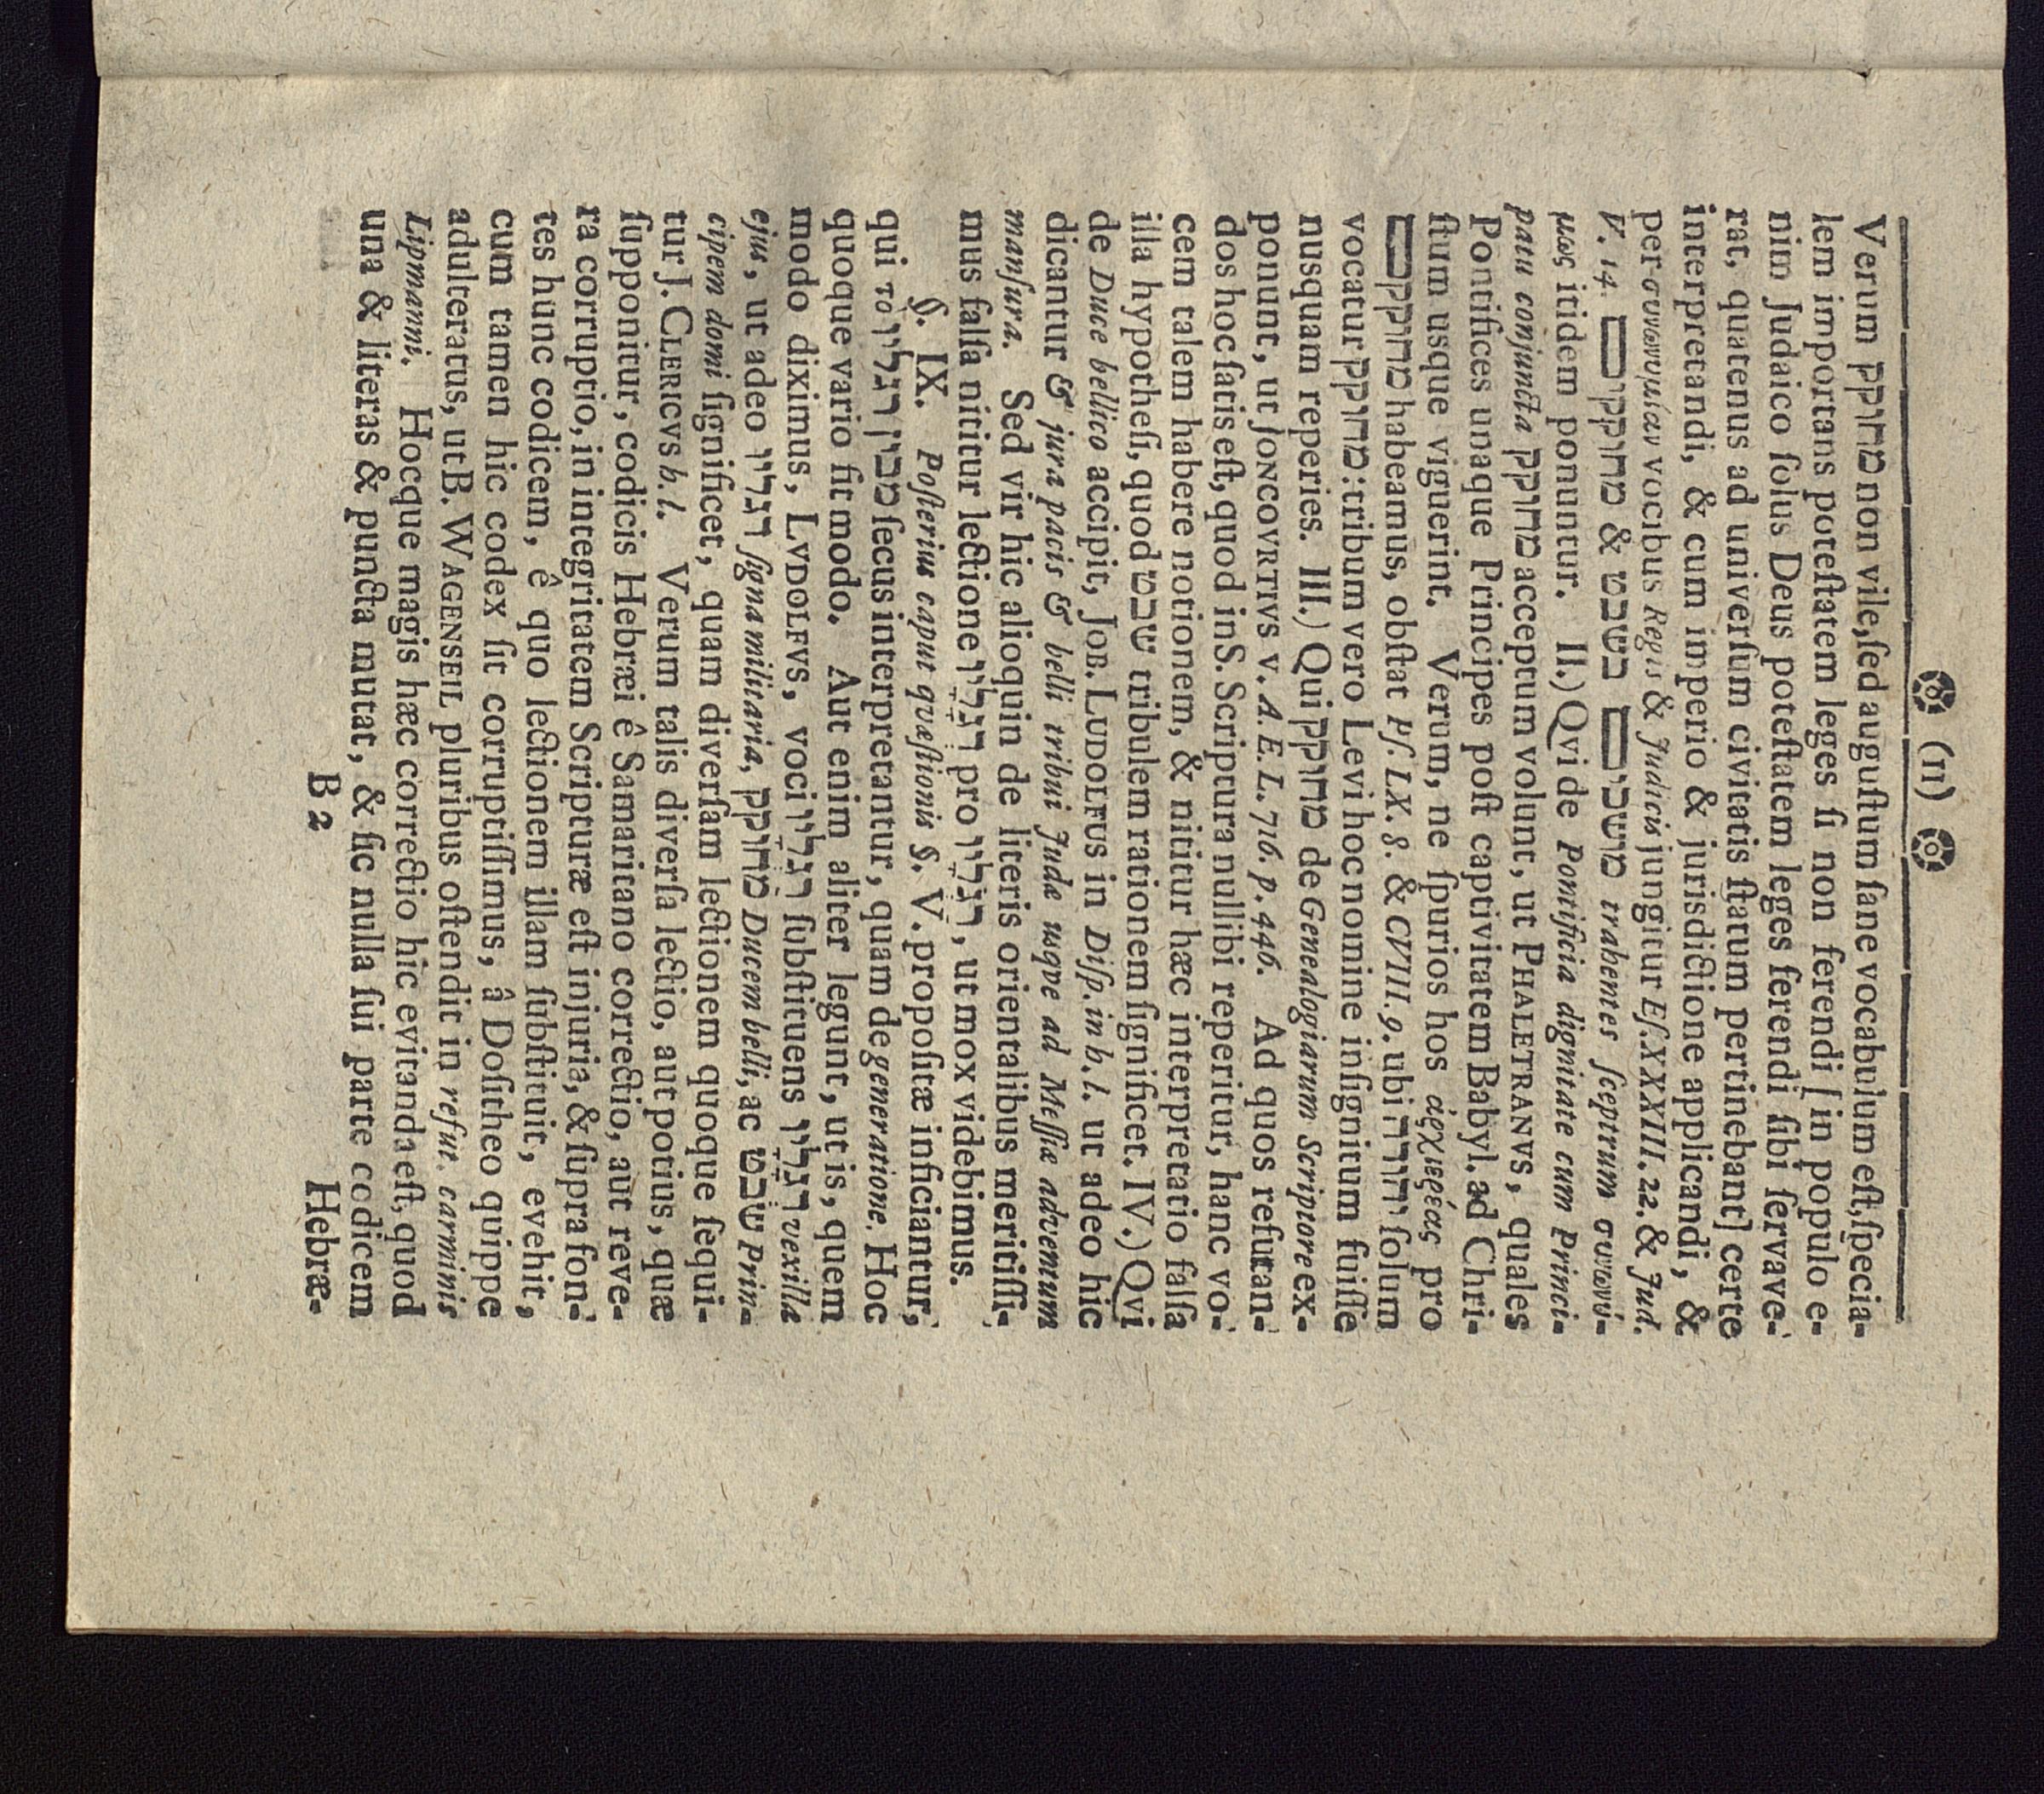 (11)
Verum מחוקק non vile,ſed auguſtum ſane vocabulum eſt,ſpecia-
lem importans poteſtatem leges ſi non ferendi [in populo e-
nim Judaico ſolus Deus poteſtatem leges ferendi ſibi ſervave-
rat, quatenus ad univerſum civitatis ſtatum pertinebant] certe
interpretandi, & cum imperio & jurisdictione applicandi, &
per συνωνυμίαν vocibus Regis & Judicis jungitur Eſ. XXXIII. 22. & Jud.
V. 14. מחוקקים & בשבט מושכים trahentes ſceptrum συνωνύ-
μως itidem ponuntur. II.) Qvi de Pontificia dignitate cum Princi-
patu conjuncta מחוקק acceptum volunt, ut PHALETRANVS, quales
Pontifices unaque Principes poſt captivitatem Babyl. ad Chri-
ſtum usque viguerint. Verum, ne ſpurios hos ἀρχιερέας pro
מחוקקים habeamus, obſtat Pſ. LX. 8. & CVIII. 9. ubi יהודה ſolum
vocatur מחוקק: tribum vero Levi hoc nomine inſignitum fuiſſe
nusquam reperies. III.) Qui מחוקק de Genealogiarum Scriptore ex-
ponunt, ut JONCOVRTIVS v. A. E. L. 716. p. 446. Ad quos refutan-
dos hoc ſatis eſt, quod in S. Scriptura nullibi reperitur, hanc vo-
cem talem habere notionem, & nititur hæc interpretatio falſa
illa hypotheſi, quod שבט tribulem rationem ſignificet. IV.) Qvi
de Duce bellico accipit, JOB. LUDOLFUS in Diſp. in h. l. ut adeo hic
dicantur & jura pacis & belli tribui Judæ usqve ad Meſſiæ adventum
manſura. Sed vir hic alioquin de literis orientalibus meritiſſi-
mus falſa nititur lectione דְּגָלָיו pro רַגְלָיו, ut mox videbimus.
§. IX. Poſterius caput qvæſtionis §. V. propoſitæ inficiantur,
qui το מבין רגליו ſecus interpretantur, quam de generatione. Hoc
quoque vario fit modo. Aut enim aliter legunt, ut is, quem
modo diximus, LVDOLFVS, voci רַגְלָיו ſubſtituens דְּגָלָיו vexilla
ejus, ut adeo דגליו ſigna militaria, מחוקק Ducem belli, ac שבט Prin-
cipem domi ſignificet, quam diverſam lectionem quoque ſequi-
tur J. CLERICVS h. l. Verum talis diverſa lectio, aut potius, quæ
ſupponitur, codicis Hebræi ê Samaritano correctio, aut reve-
ra corruptio, in integritatem Scripturæ eſt injuria, & ſupra fon-
tes hunc codicem, ê quo lectionem illam ſubſtituit, evehit,
cum tamen hic codex ſit corruptiſſimus, â Doſitheo quippe
adulteratus, ut B. WAGENSEIL pluribus oſtendit in refut. carminis
Lipmanni. Hocque magis hæc correctio hic evitanda eſt, quod
una & literas & puncta mutat, & ſic nulla ſui parte codicem
B 2 Hebræ-